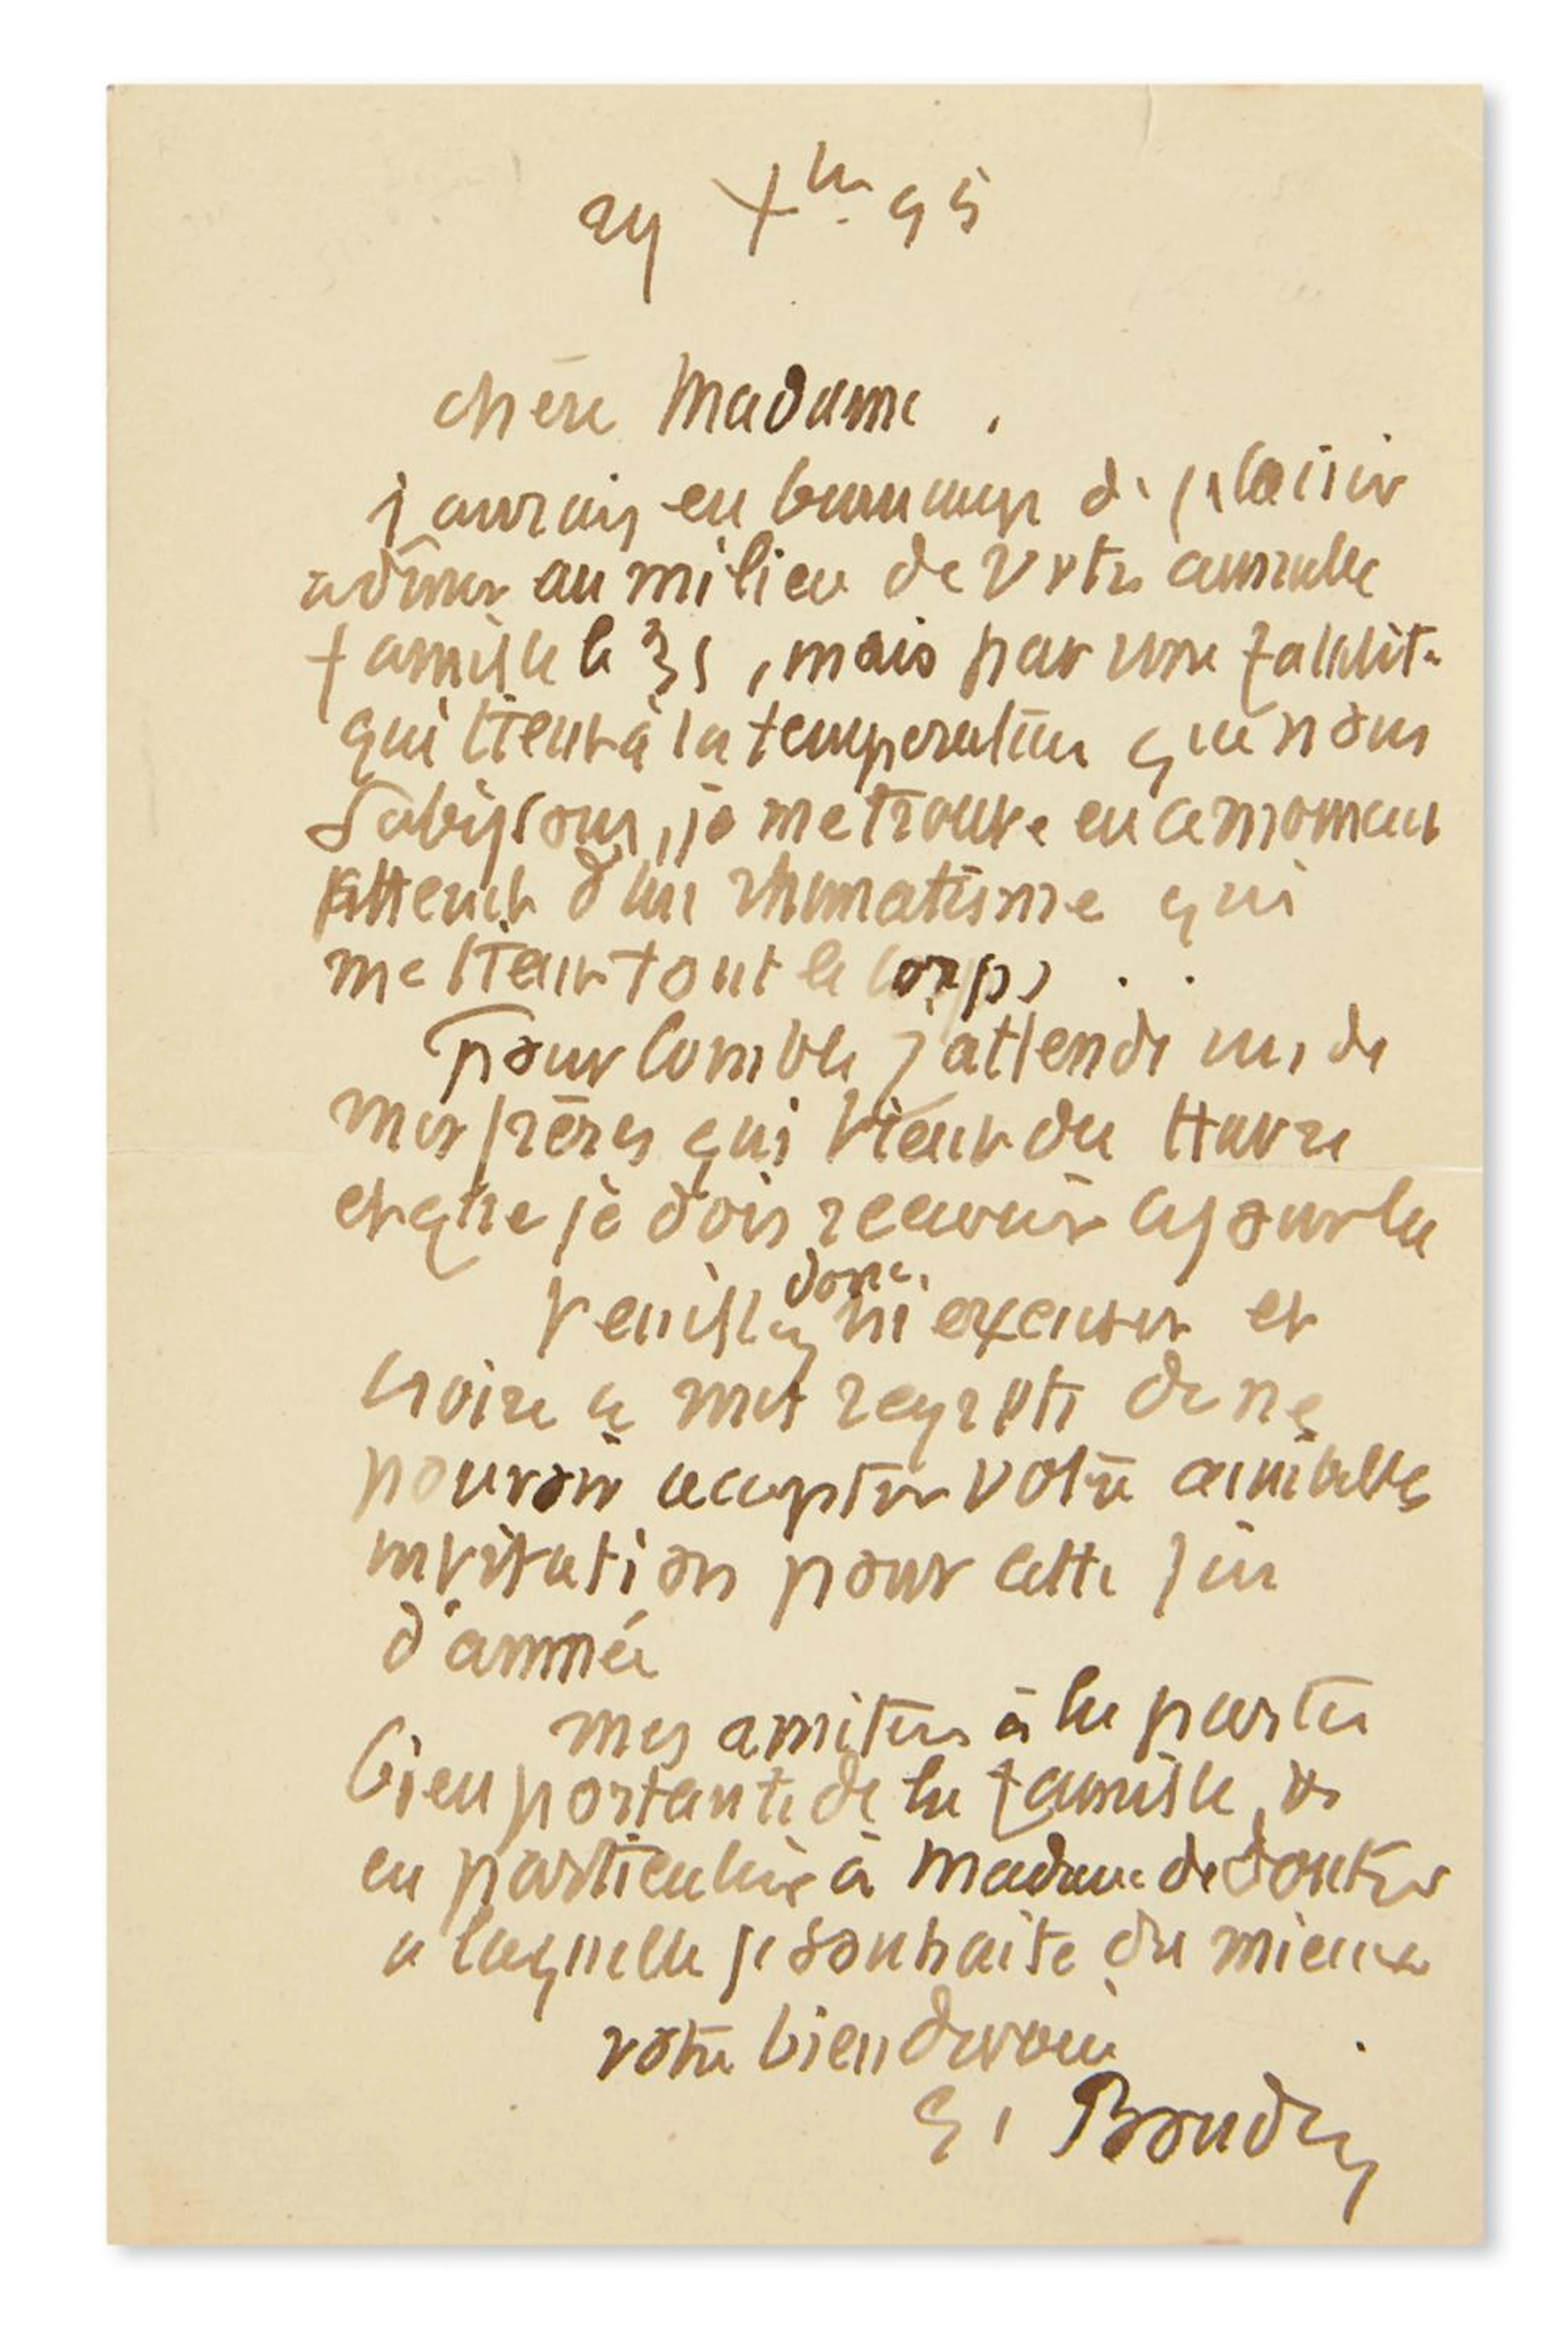 29 Xbre 95
chère Madame.
j'aurais eu beaucoup de plaisir
a diner au milieu de votre aimable
famille le 31, mais par une fatalité
qui tient à la temperature que nous
subissons, je me trouve en ce moment
atteint d'un rhumatisme qui
me tient tout le corps ..
Pour comble j'attends un de
mes frères qui vient du Havre
et que je dois recevoir ce jour là
Veuillez donc m'excuser et
croire a mes regrets de ne
pouvoir accepter votre aimable
invitation pour cette fin
d'année
mes amitiés à la partie
bien portante de la famille, et
en particulier à Madame de
a laquelle je souhaite du mieux
votre bien devoué
E. Boudin